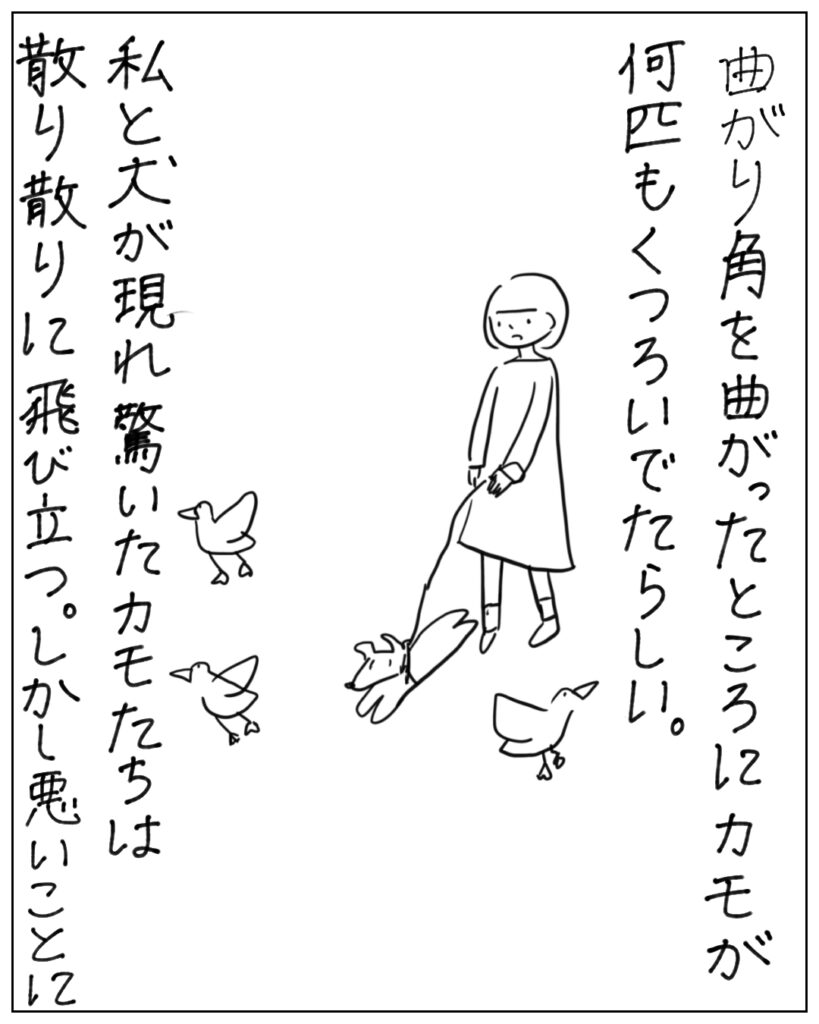 曲がり角を曲がったところにカモが
何匹もくつろいでたらしい。
私と犬が現れ驚いたカモたちは
散り散りに飛び立つ。しかし悪いことに